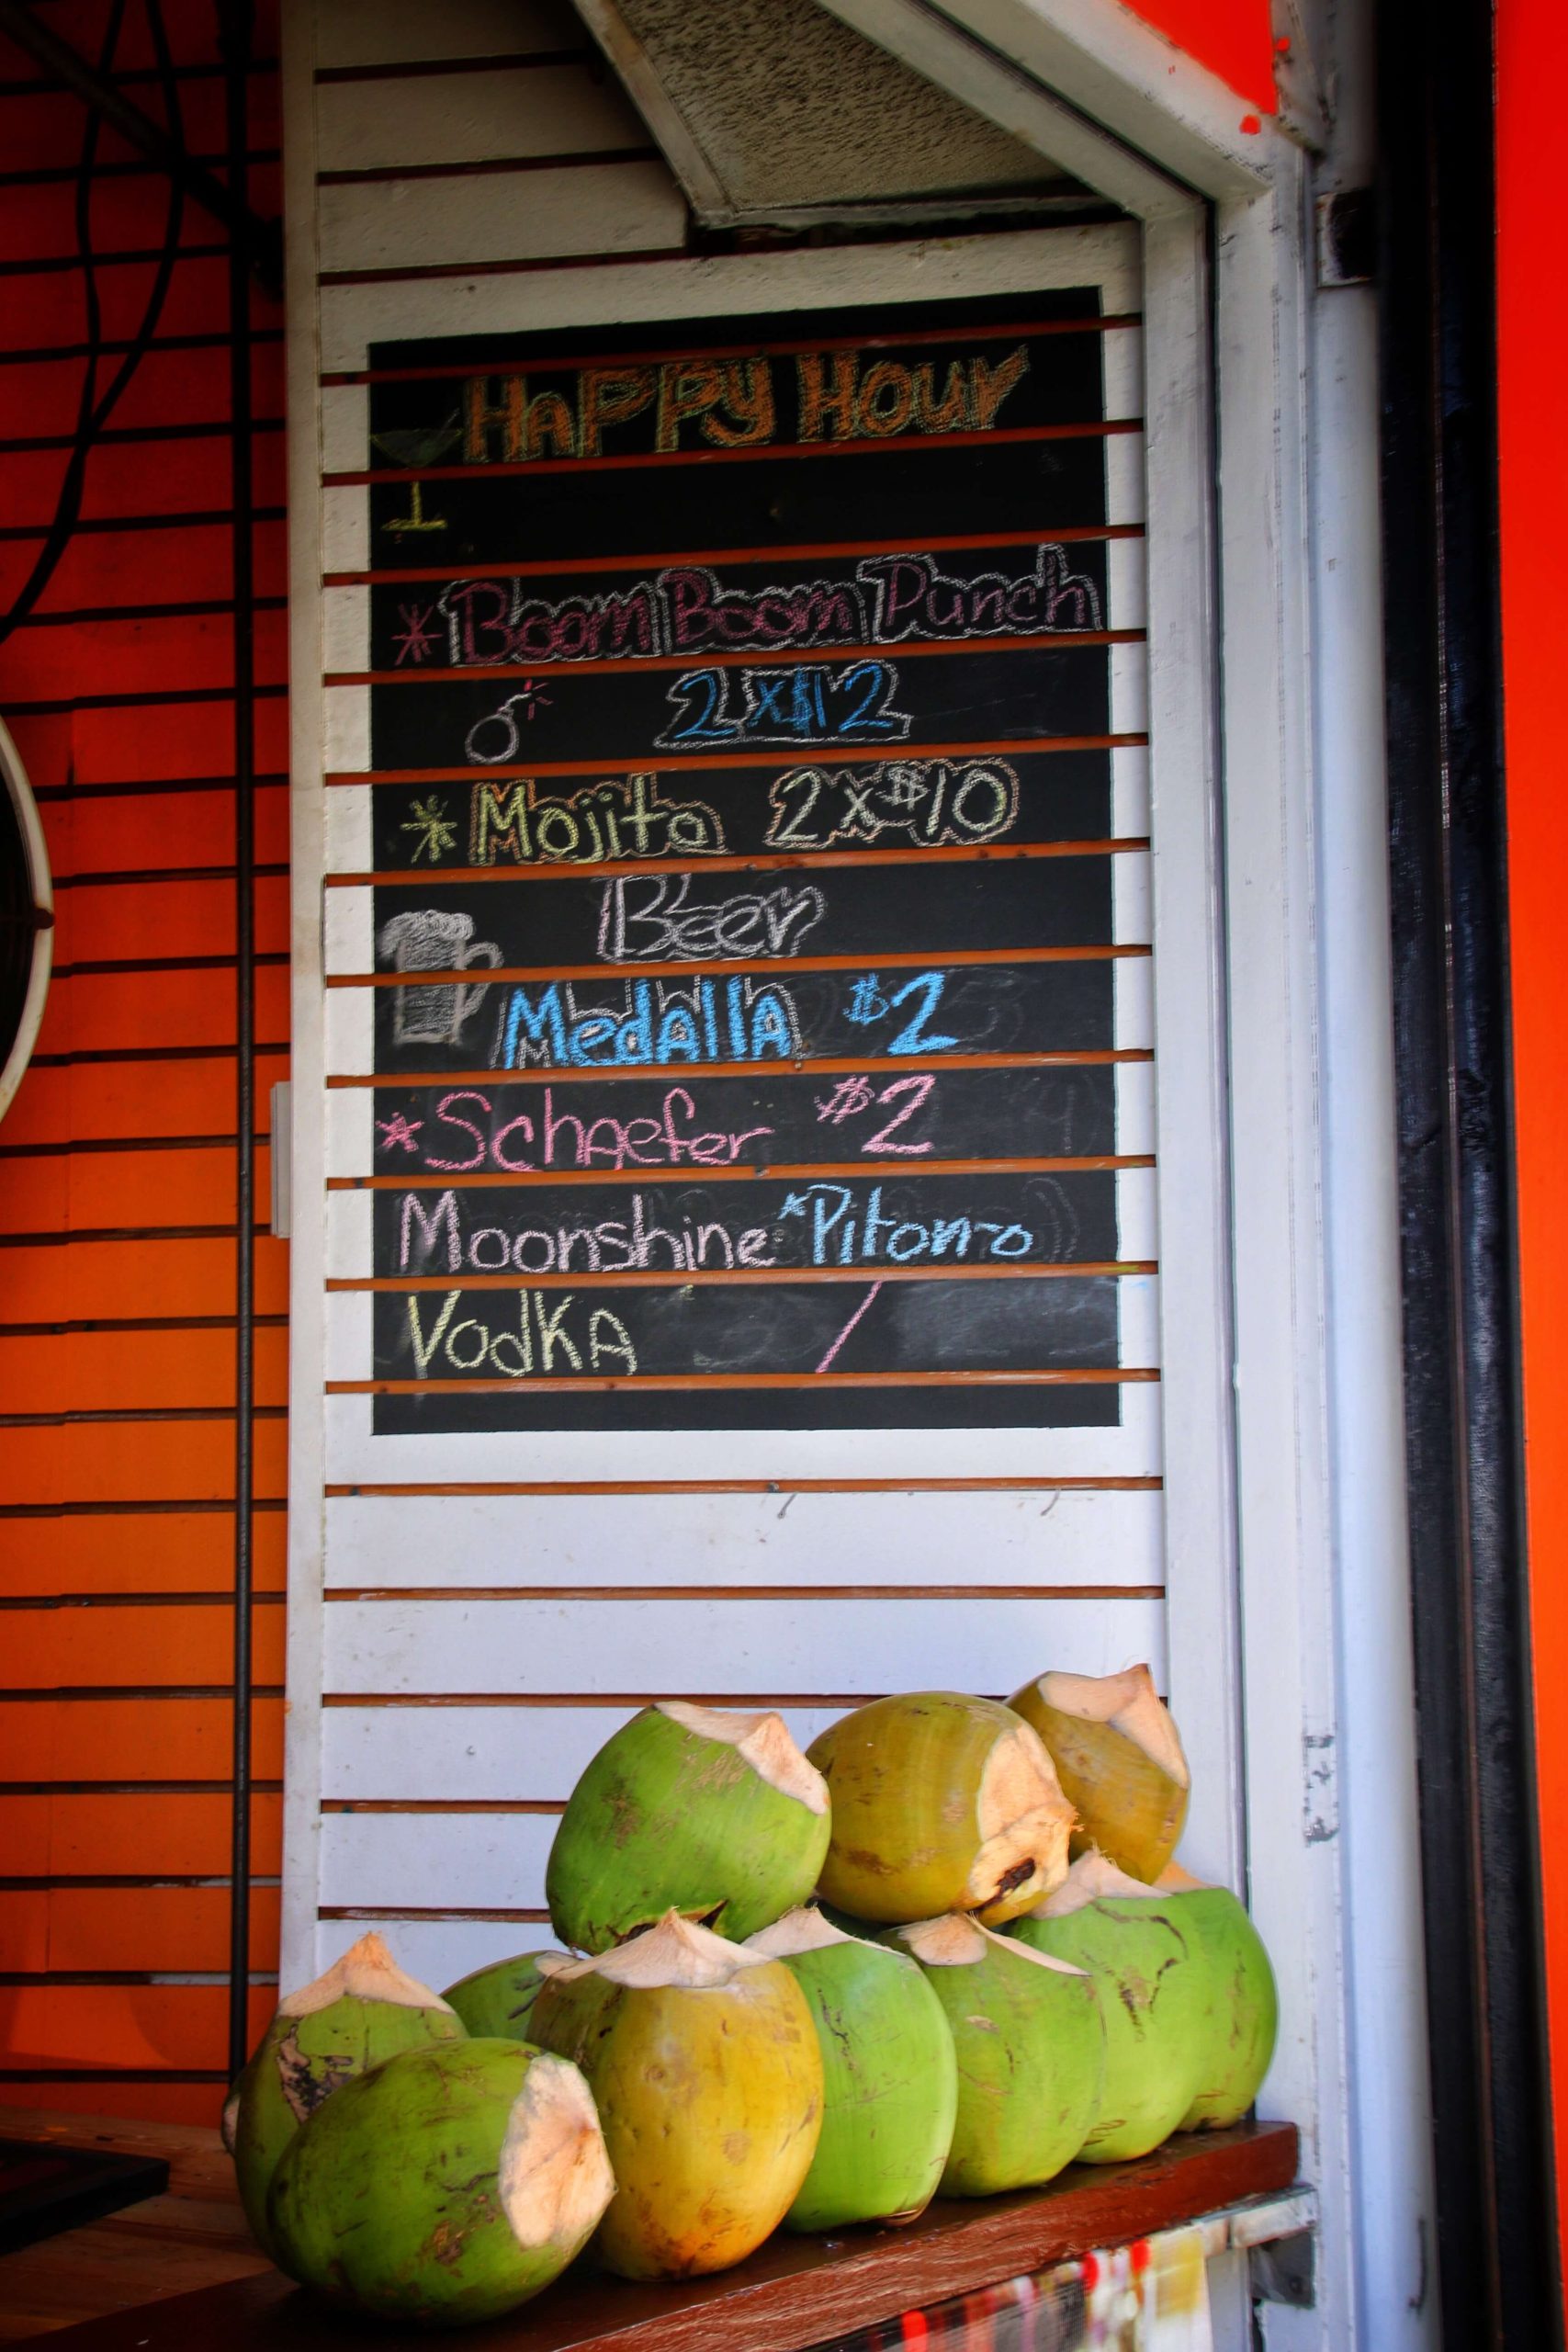 HaPPy Hour
* Boom Boom Punch
2 x $12
* Mojito 2 x $10
Beer
MedAllA $2
* SchAefer $2
Moonshine *Pitorro
VodKA /